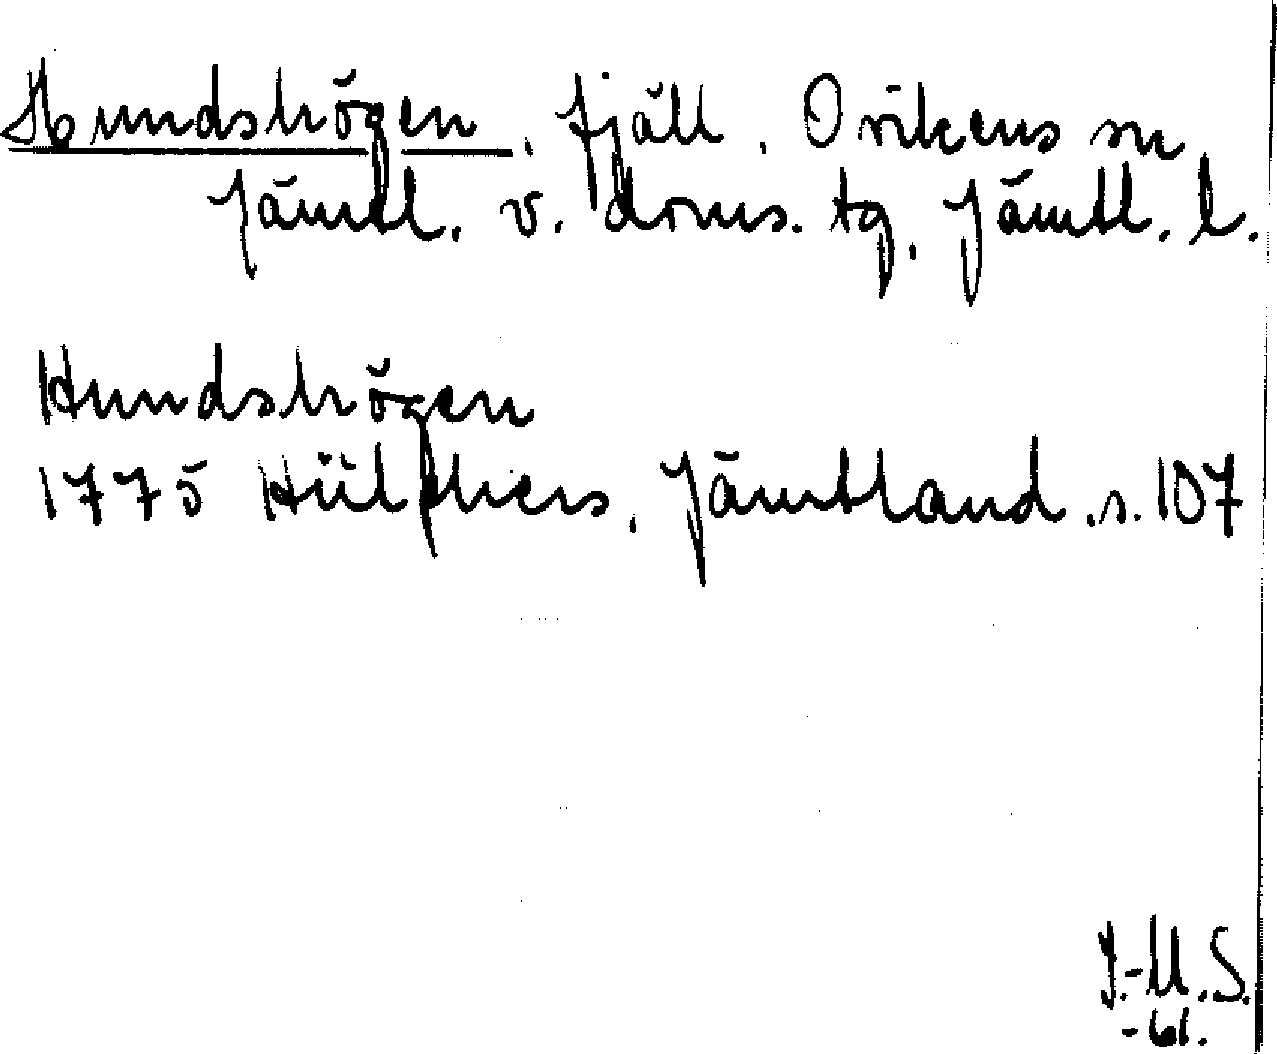 Hundshögen, fjäll, Ovikens sn
Jämtl. v. doms. tg, Jämtl. l.
Hundshögen
1775 Hülphers, Jämtland, s. 107
I.-M.S.
-61.